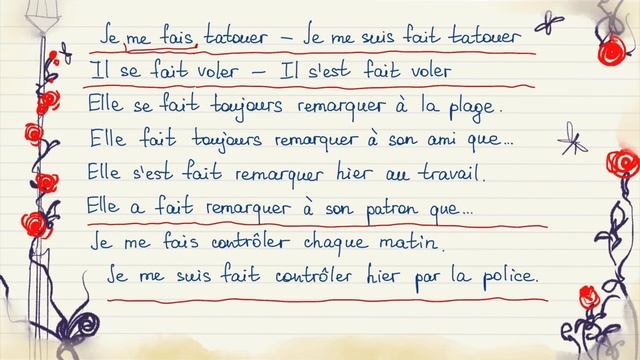 Je me fais tatouer – Je me suis fait tatouer
Il se fait voler – Il s'est fait voler
Elle se fait toujours remarquer à la plage.
Elle fait toujours remarquer à son ami que...
Elle s'est fait remarquer hier au travail.
Elle a fait remarquer à son patron que...
Je me fais contrôler chaque matin.
Je me suis fait contrôler hier par la police.